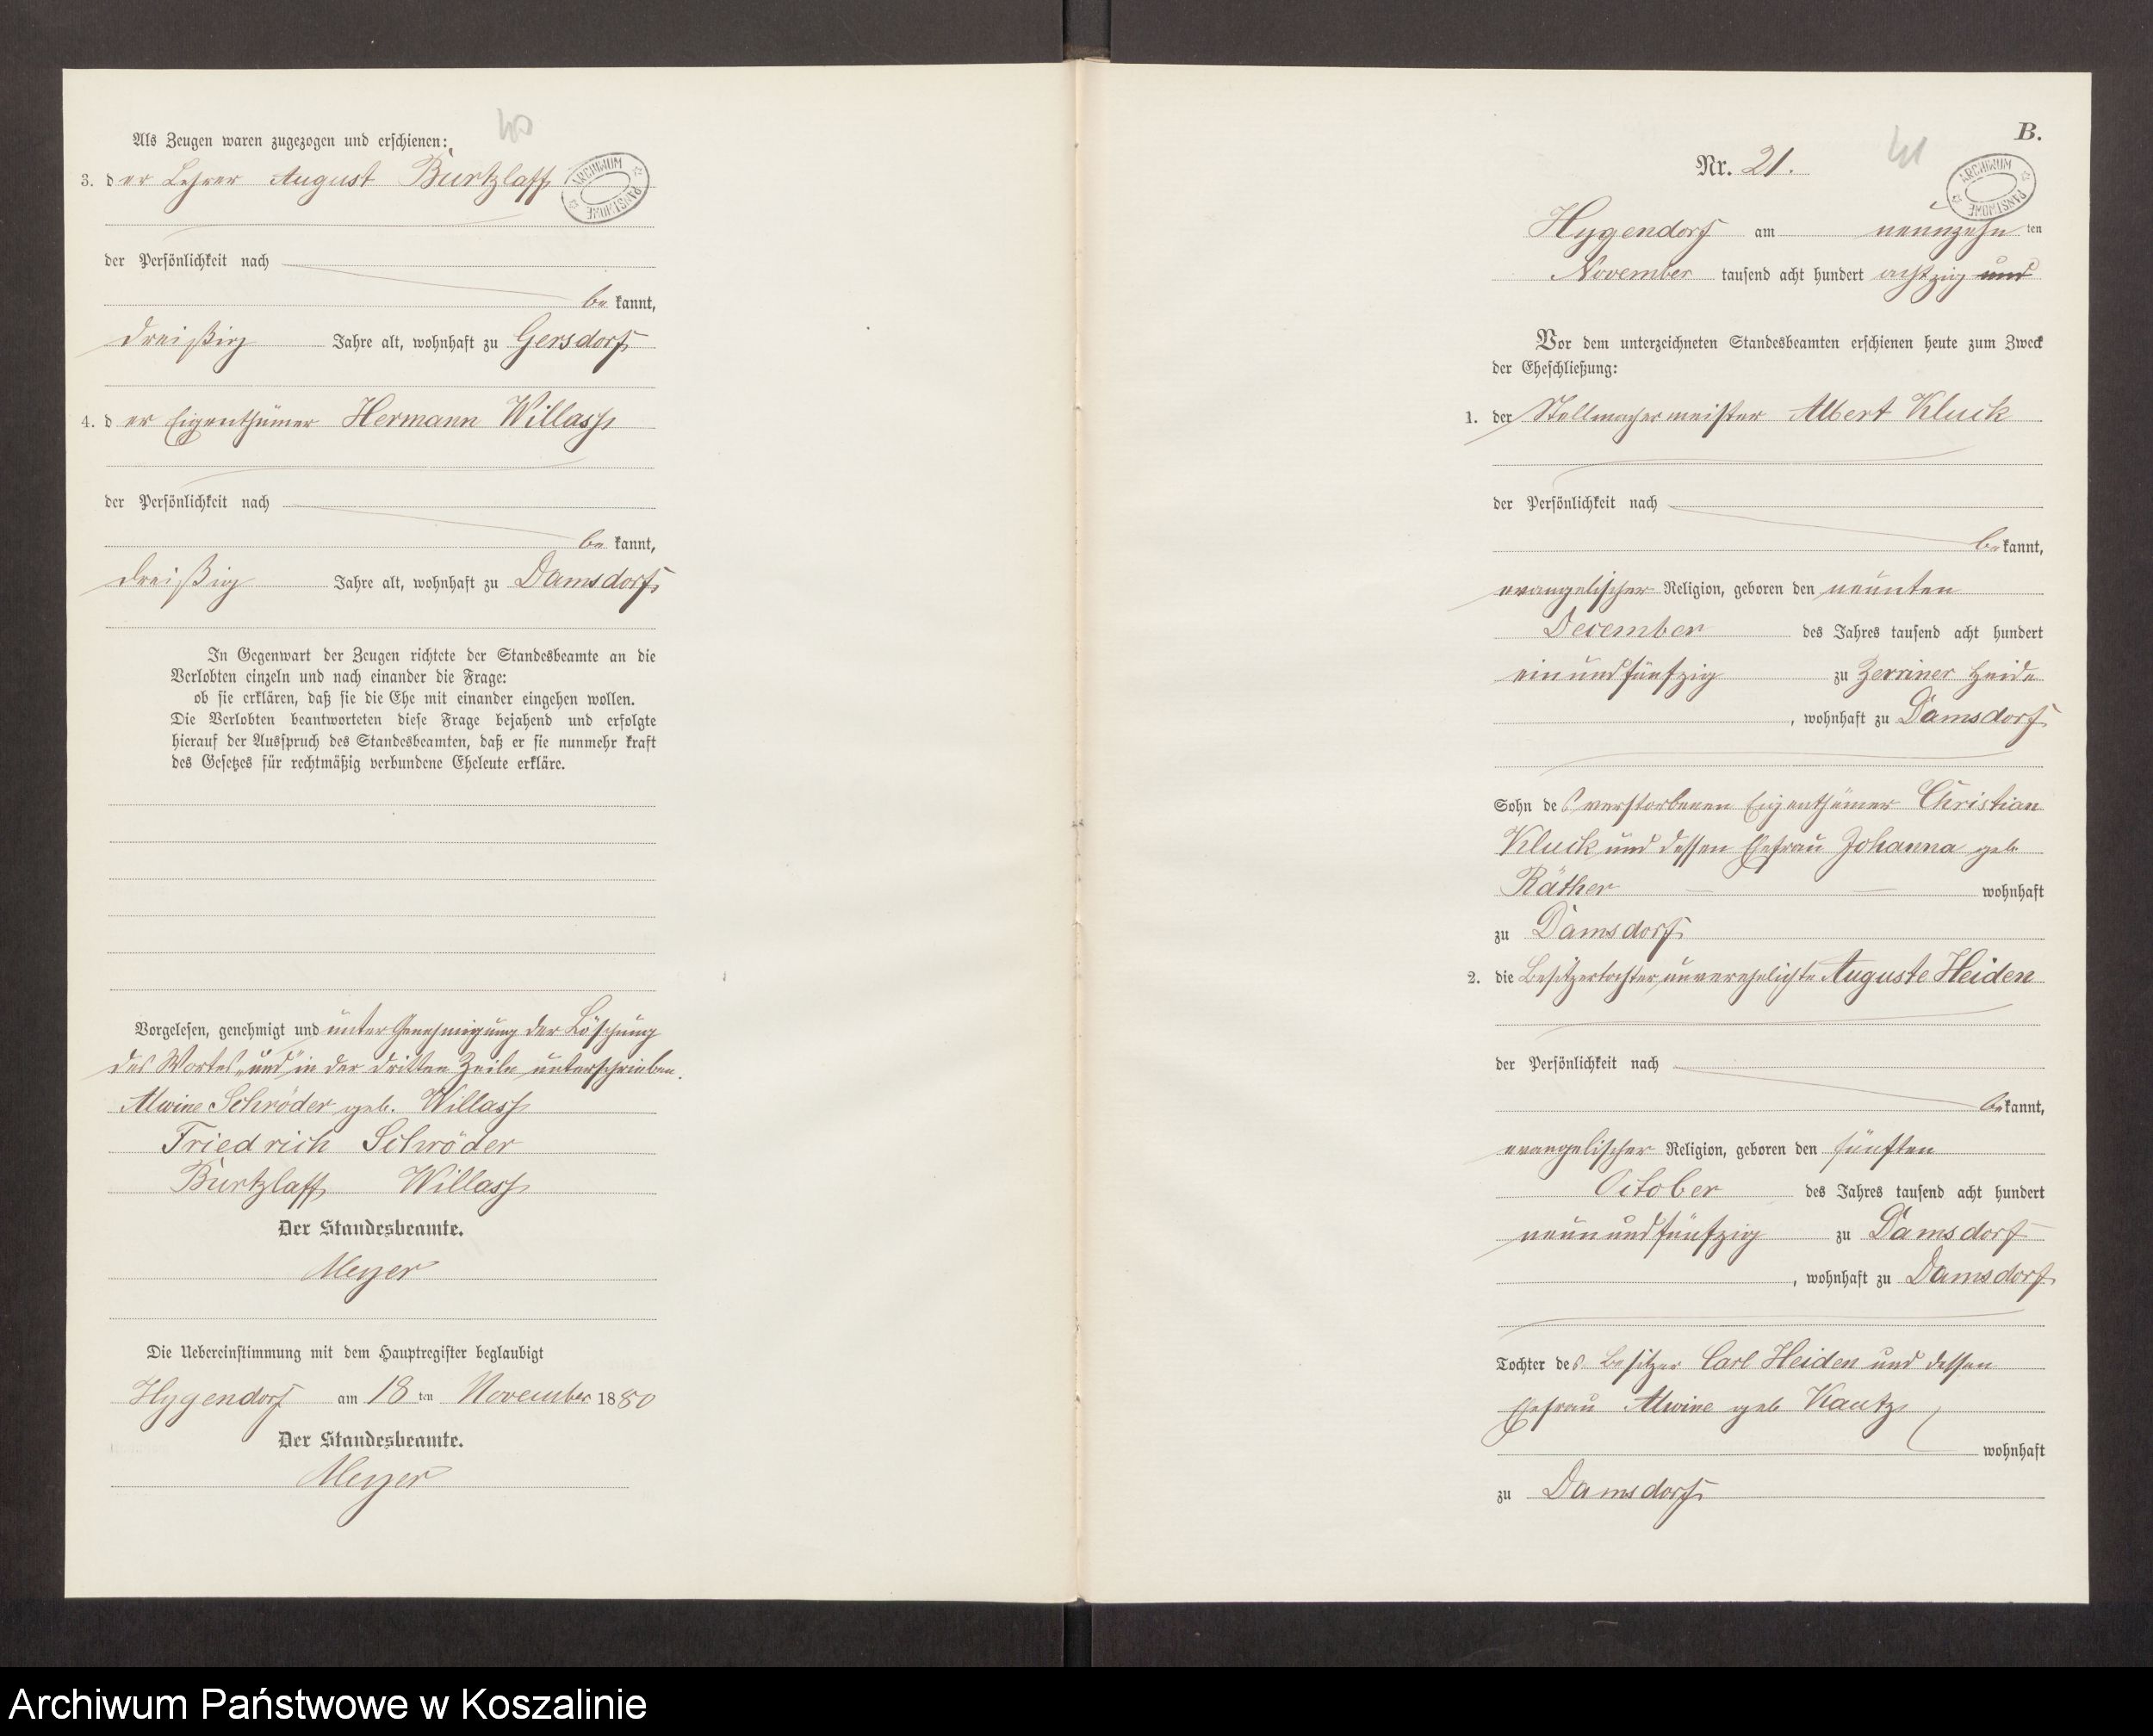 40
Als Zeugen waren zugezogen und erschienen:
3. der Lehrer August Burtzlaff
der Persönlichkeit nach
bekannt,
dreißig Jahre alt, wohnhaft zu Gersdorf
4. der Eigenthümer Hermann Willass
der Persönlichkeit nach
bekannt,
dreißig Jahre alt, wohnhaft zu Damsdorf
In Gegenwart der Zeugen richtete der Standesbeamte an die
Verlobten einzeln und nach einander die Frage:
ob sie erklären, daß sie die Ehe mit einander eingehen wollen.
Die Verlobten beantworteten diese Frage bejahend und erfolgte
hierauf der Ausspruch des Standesbeamten, daß er sie nunmehr kraft
des Gesetzes für rechtmäßig verbundene Eheleute erkläre.
Vorgelesen, genehmigt und unter Genehmigung der Löschung
des Wortes „und" in der dritten Zeile unterschrieben.
Alwine Schröder geb. Willass
Friedrich Schröder
Burtzlaff Willass
Der Standesbeamte.
Meyer
Die Uebereinstimmung mit dem Hauptregister beglaubigt
Hygendorf am 18ten November 1880
Der Standesbeamte.
Meyer
ARCHIWUM PAŃSTWOWE
B.
41
Nr. 21.
ARCHIWUM PAŃSTWOWE
Hygendorf am neunzehnten
November tausend acht hundert achtzig und
Vor dem unterzeichneten Standesbeamten erschienen heute zum Zweck
der Eheschließung:
1. der Stellmachermeister Albert Kluck
der Persönlichkeit nach
bekannt,
evangelischer Religion, geboren den neunten
December des Jahres tausend acht hundert
einundfünfzig zu Zerriner Heide
, wohnhaft zu Damsdorf
Sohn des verstorbenen Eigenthümer Christian
Kluck und dessen Ehefrau Johanna geb
Räther wohnhaft
zu Damsdorf
2. die Besitzertochter, unverehelichte Auguste Heiden
der Persönlichkeit nach
bekannt,
evangelischer Religion, geboren den fünften
October des Jahres tausend acht hundert
neunundfünfzig zu Damsdorf
, wohnhaft zu Damsdorf
Tochter des Besitzer Carl Heiden und dessen
Ehefrau Alwine geb Kautz
wohnhaft
zu Damsdorf
Archiwum Państwowe w Koszalinie